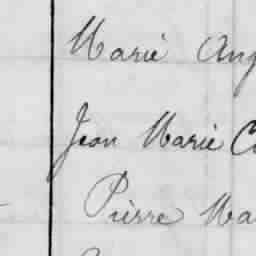 Marie Ang
Jean Marie C
Pierre Ma